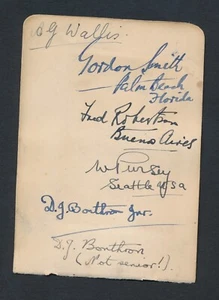 D G Wallis.
Gordon Smith
Palm Beach
Florida
Fred Robertson
Buenos Aires
W Pursey
Seattle USA
D. J. Bonthron Jnr.
D. J. Bonthron
(Not senior!).